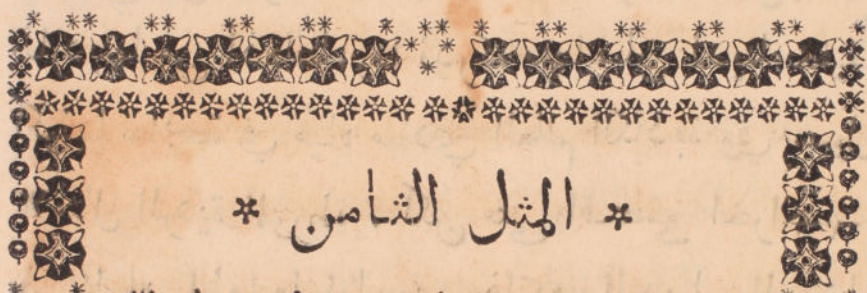 * المثل الثامن *